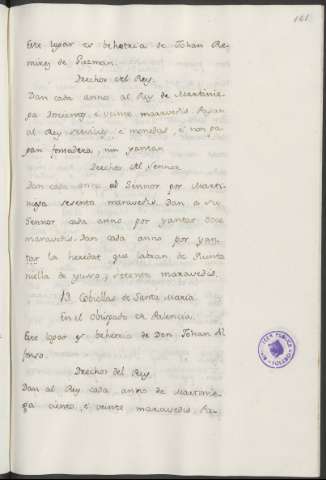 161
Este logar es behetria de Johan Ra-
mirez de Guzman.
Drechos del Rey.
Dan cada anno al Rey de Martinie-
ga trecientos, è veinte maravedis. Pagan
al Rey servicios, è monedas, è non pa-
gan fonsadera, nin yantar.
Drechos del Sennor
Dan cada anno al Sennor por Marti-
niega sesenta maravedis. Dan a su
Sennor cada anno por yantar doce
maravedis. Dan cada anno por yan-
tar la heredat que labran de
niella de yuso, setenta maravedis.
13. Cobiellas de Santa Maria.
En el Obispado de Palencia.
Este logar es behetria de Don Johan Al
fonso.
Drechos del Rey.
Dan al Rey cada anno de Martinie-
ga ciento, è veinte maravedis. Pa-